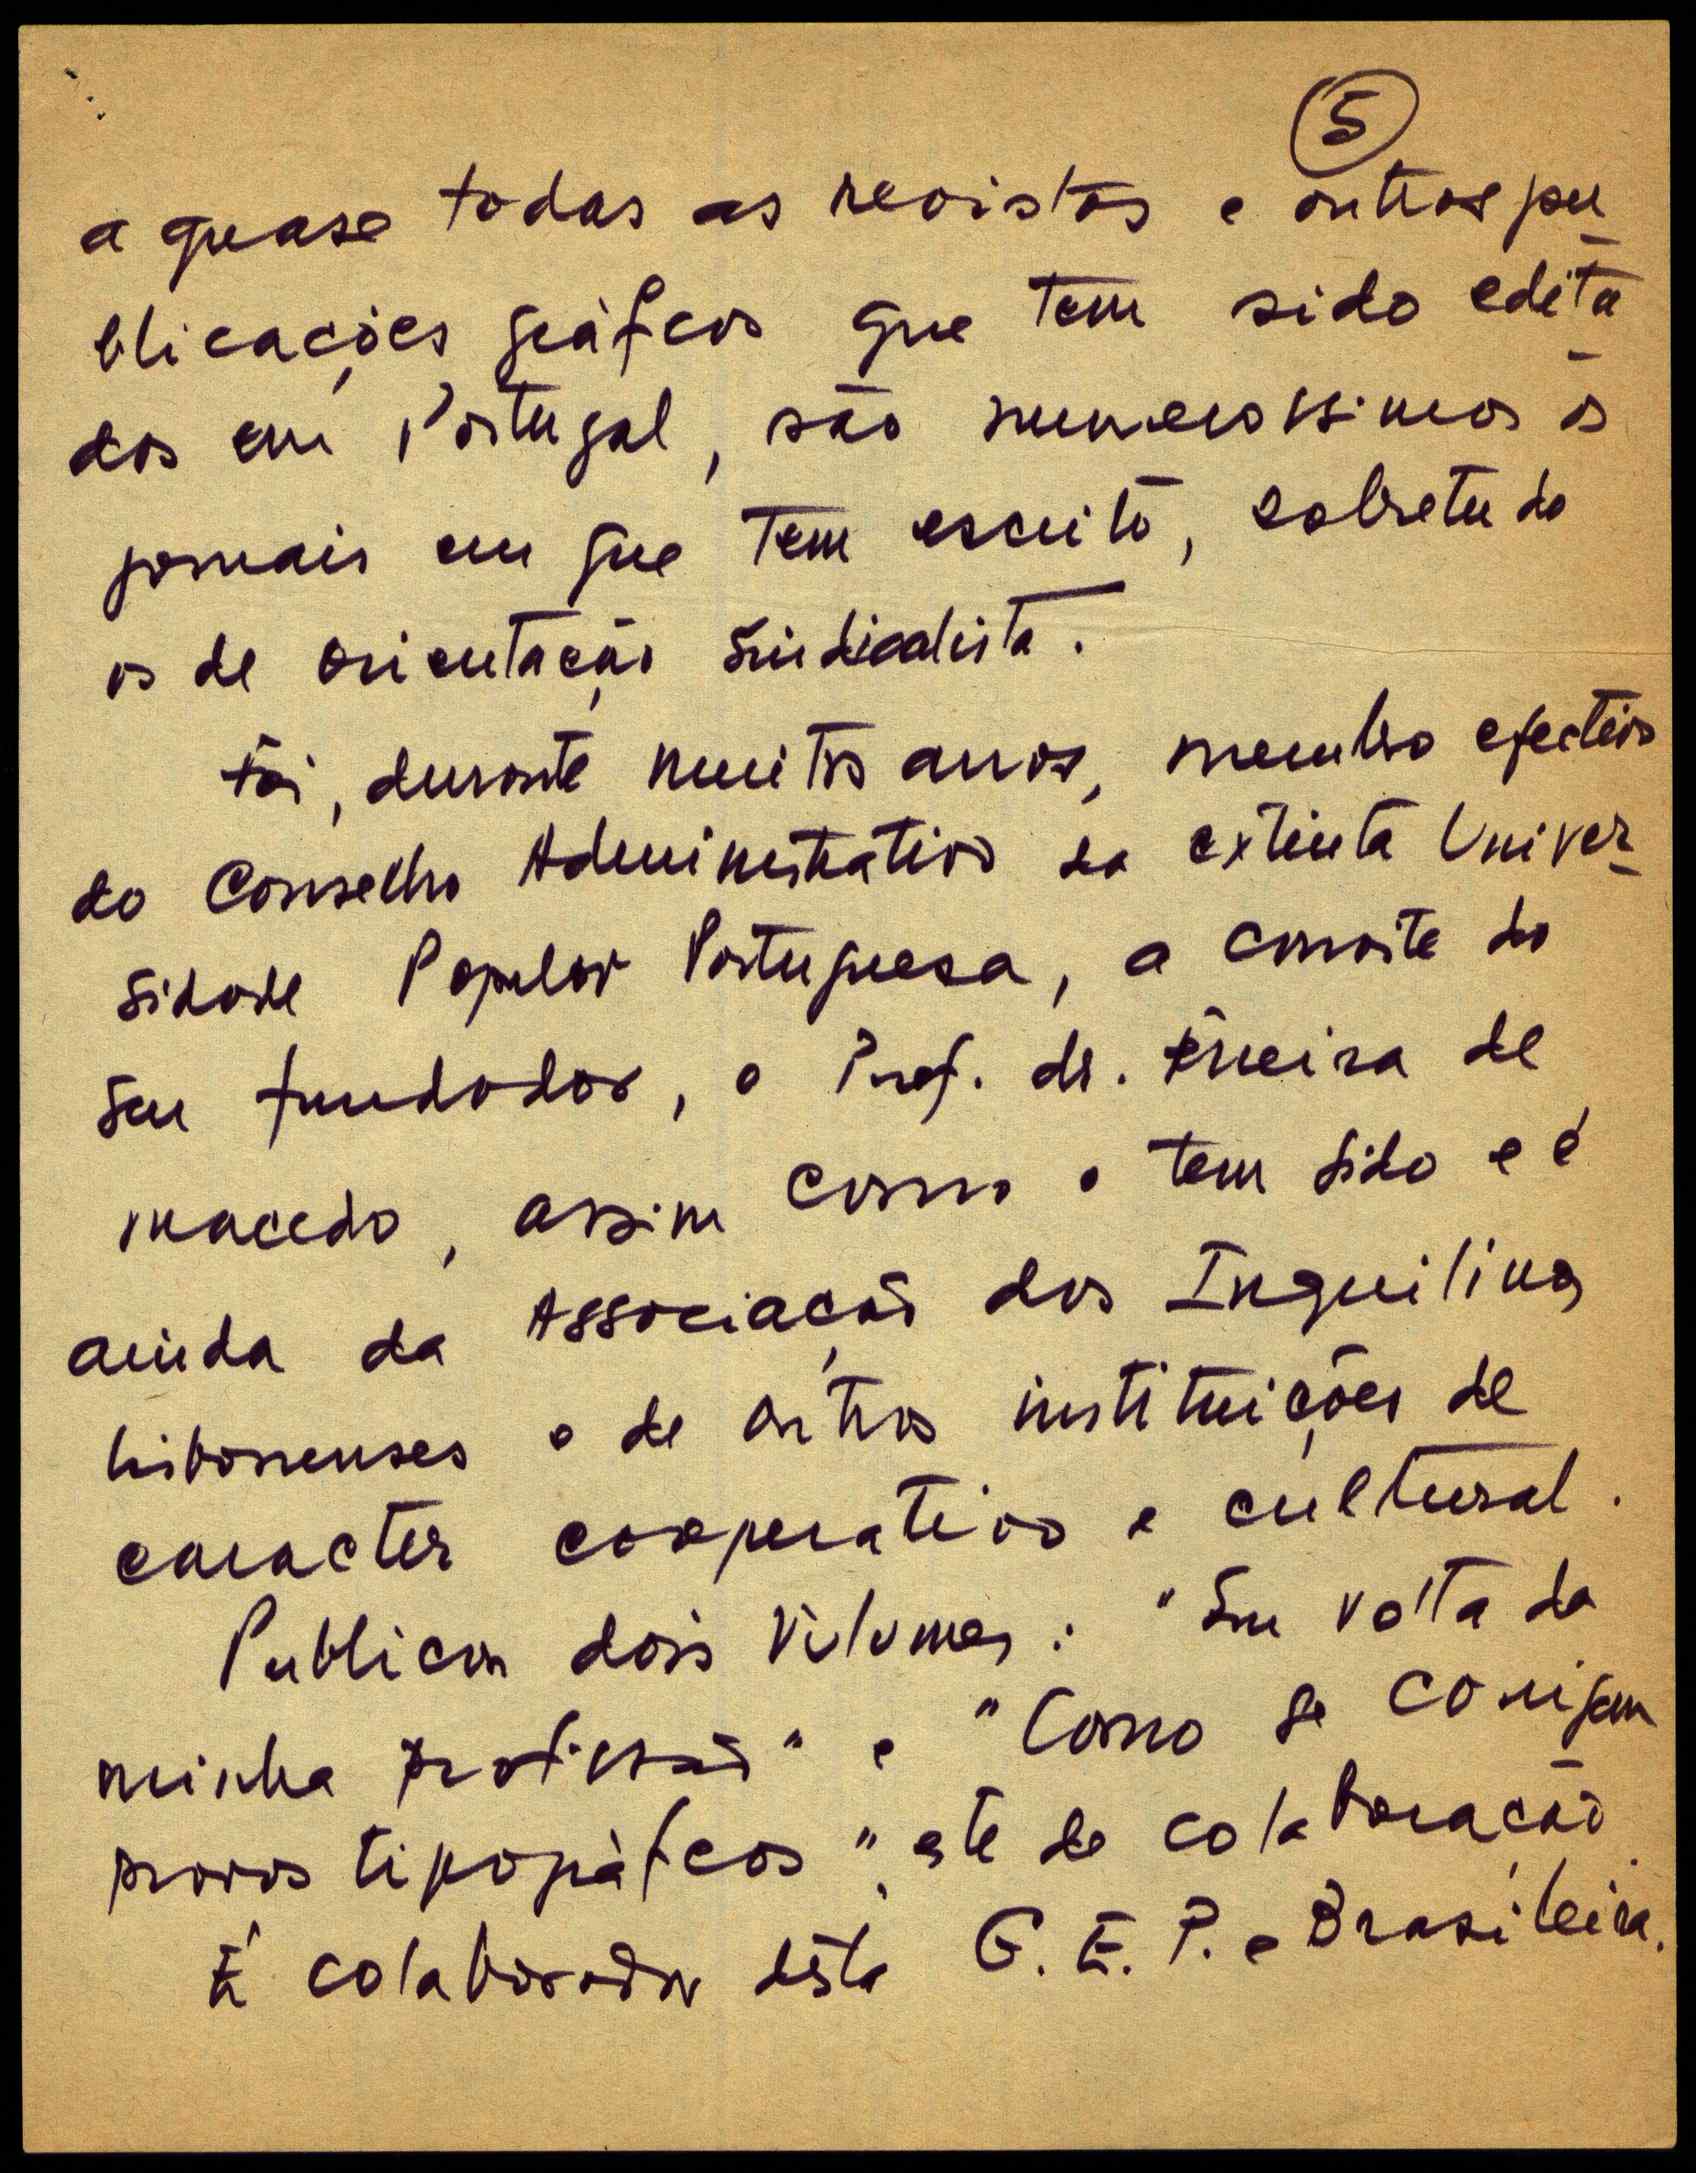 5
a quase todas as revistas e outras pu
blicações gráficas que tem sido edita
das em Portugal, são numerossimos os
jornais em que tem escrito, sobretudo
os de orientação sindicalista.
Foi, durante muitos anos, membro efectivo
do Conselho Administrativo da extinta Univer-
sidade Popular Portuguesa, a convite do
seu fundador, o Prof. dr. Ferreira de
Macedo, assim como o tem sido e é
ainda da Associação dos Inquilinos
Lisbonenses e de outras instituições de
caracter cooperativo e cultural.
Publicou dois volumes: "Em volta da
minha profissão" e "Como se corrigem
provas tipográficas", este de colaboração.
É colaborador desta G. E. P. e Brasileira.